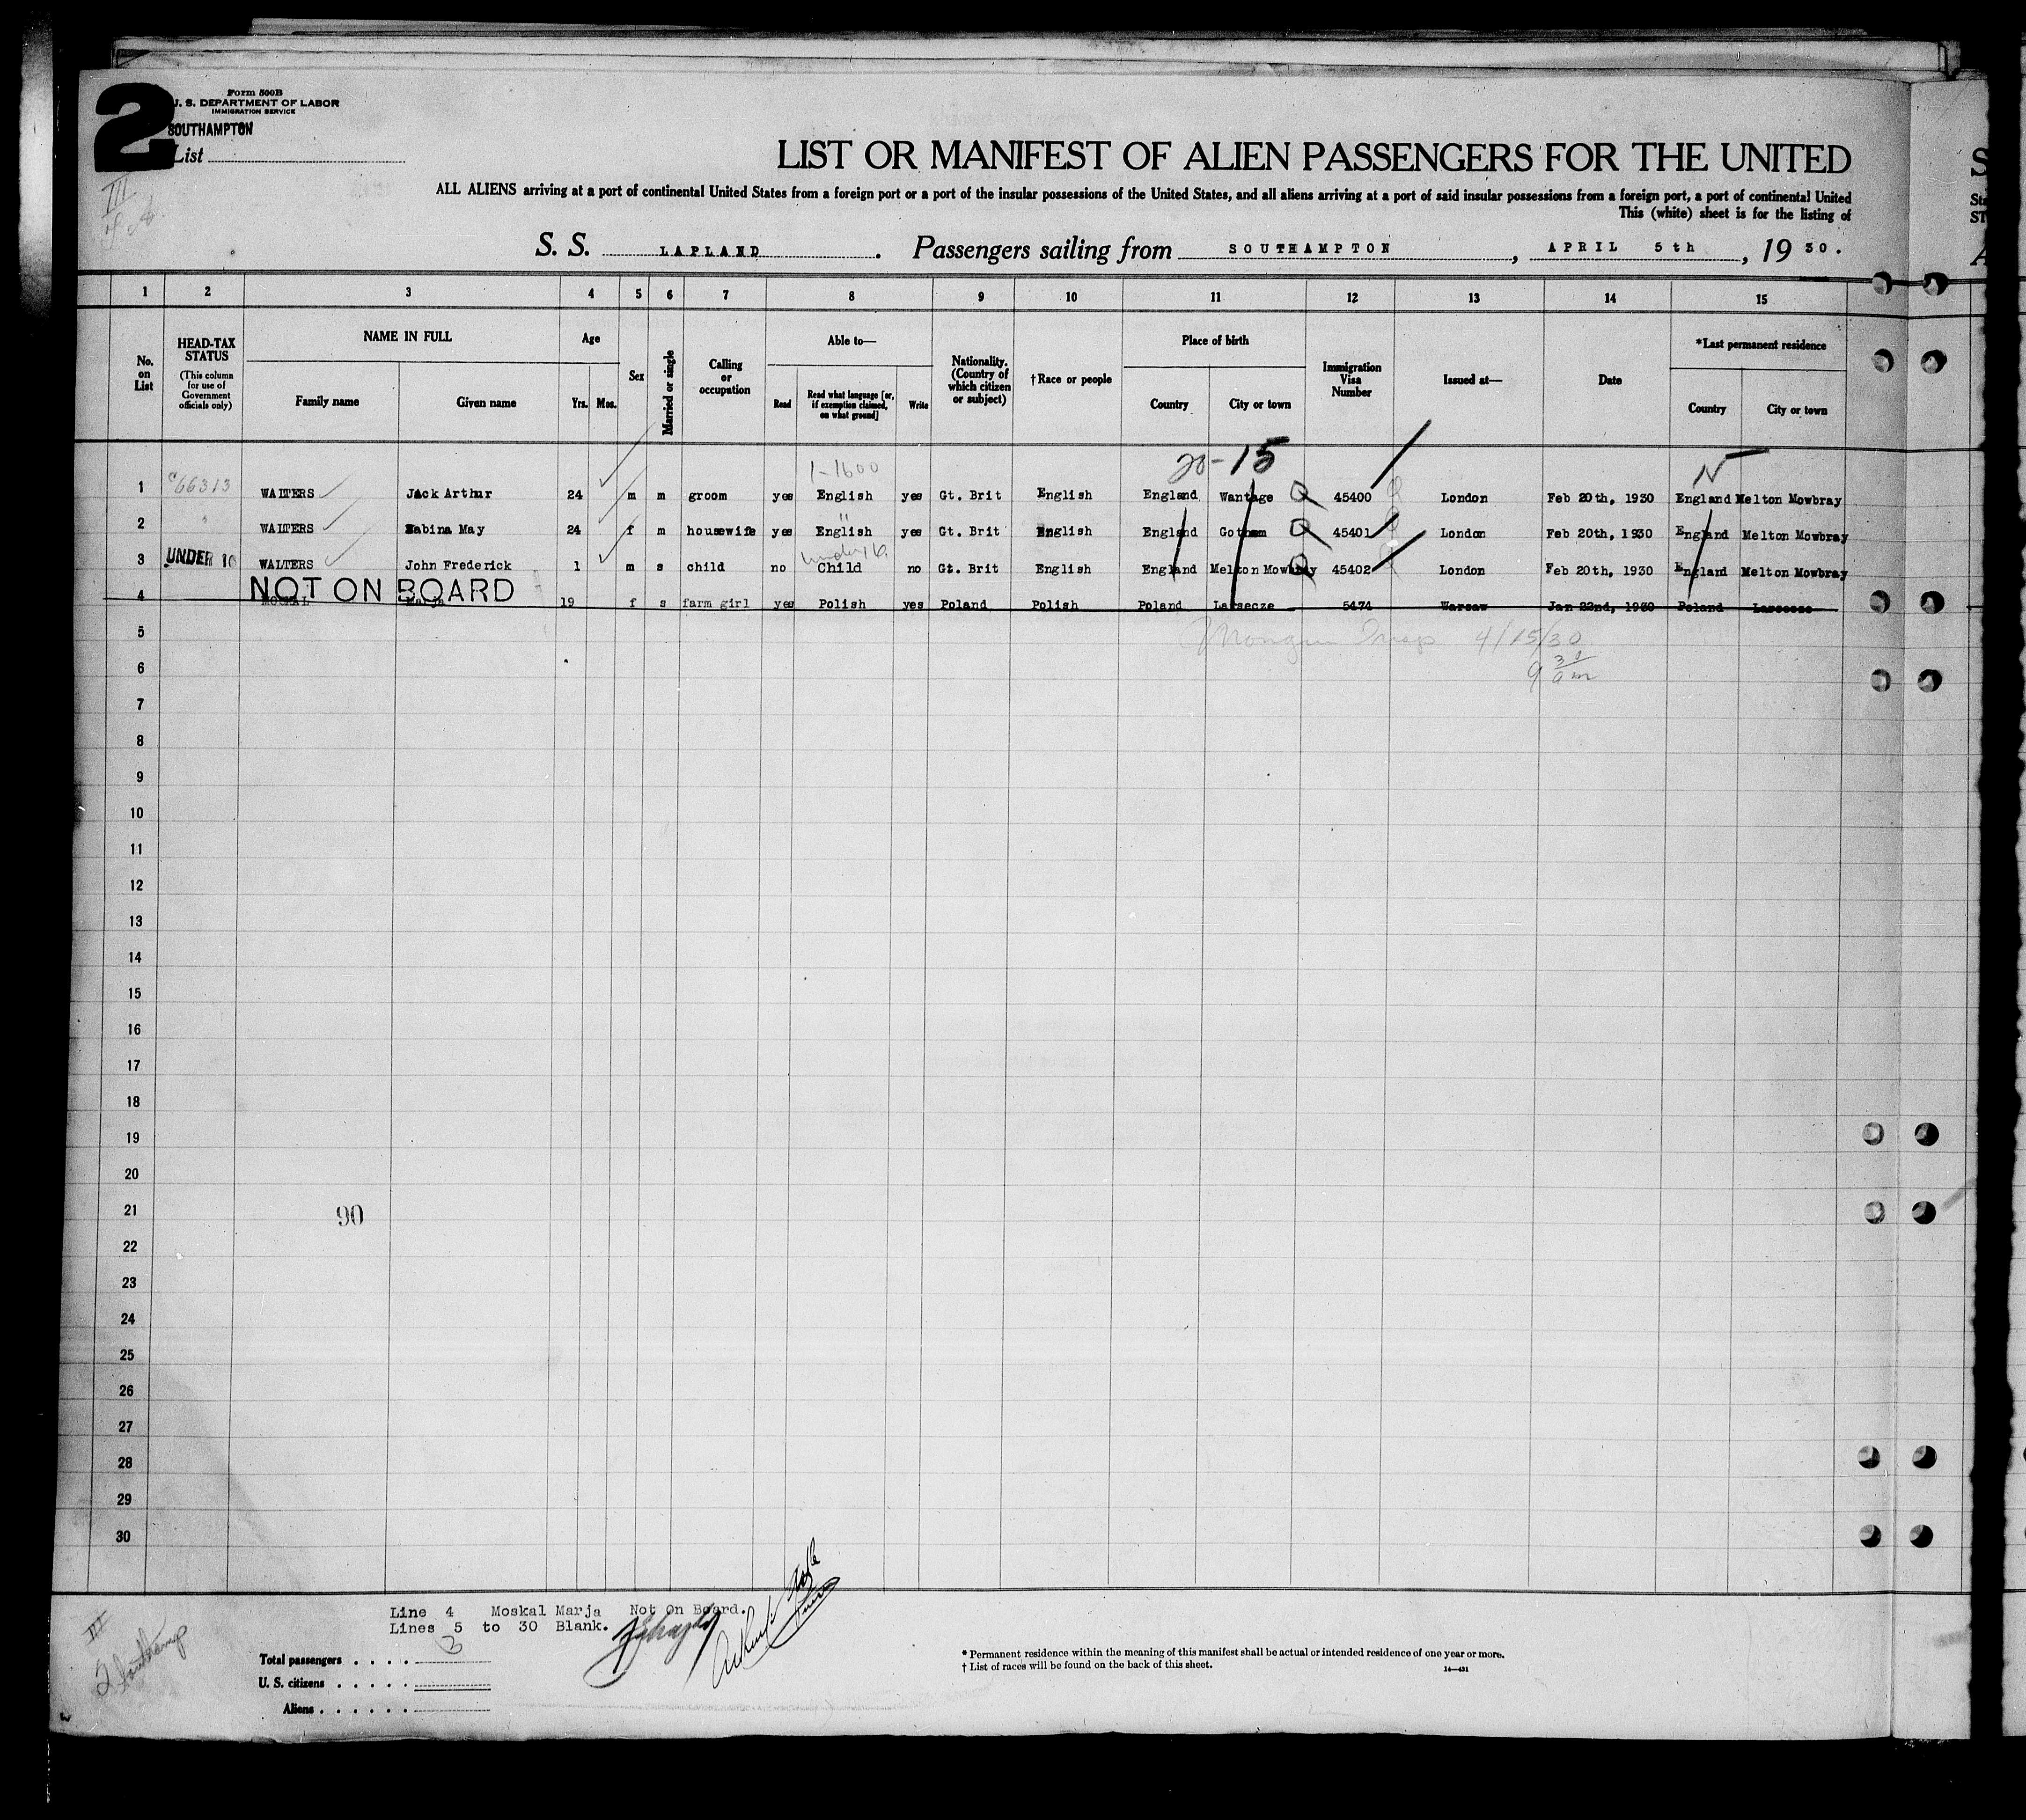 2
Form 500B
U. S. DEPARTMENT OF LABOR
IMMIGRATION SERVICE
SOUTHAMPTON
List
III
LIST OR MANIFEST OF ALIEN PASSENGERS FOR THE UNITED
ALL ALIENS arriving at a port of continental United States from a foreign port or a port of the insular possessions of the United States, and all aliens arriving at a port of said insular possessions from a foreign port, a port of continental United
This (white) sheet is for the listing of
S. S. LAPLAND. Passengers sailing from SOUTHAMPTON, APRIL 5th, 1930.
1 2 3 4 5 6 7 8 9 10 11 12 13 14 15
No. on List
HEAD-TAX STATUS (This column for use of Government officials only)
NAME IN FULL
Family name Given name
Age
Yrs. Mos.
Sex
Married or single
Calling or occupation
Able to—
Read Read what language [or, if exemption claimed, on what ground] Write
Nationality. (Country of which citizen or subject)
†Race or people
Place of birth
Country City or town
Immigration Visa Number
Issued at—
Date
*Last permanent residence
Country City or town
1-1600 20-15
1 66313 WALTERS Jack Arthur 24 m m groom yes English yes Gt. Brit English England Wantage 45400 London Feb 20th, 1930 England Melton Mowbray
2 " WALTERS Sabina May 24 f m housewife yes English yes Gt. Brit English England Gotham 45401 London Feb 20th, 1930 England Melton Mowbray
under 16
3 UNDER 16 WALTERS John Frederick 1 m s child no Child no Gt. Brit English England Melton Mowbray 45402 London Feb 20th, 1930 England Melton Mowbray
NOT ON BOARD
4 MOSKAL Marja 19 f s farm girl yes Polish yes Poland Polish Poland Larsecze 5474 Warsaw Jan 22nd, 1930 Poland Larsecze
5
4/15/30
6
9 30 am
7
8
9
10
11
12
13
14
15
16
17
18
19
20
21 90
22
23
24
25
26
27
28
29
30
Line 4 Moskal Marja Not On Board.
Lines 5 to 30 Blank.
III
2 Southamp
Total passengers . . . . 3
U. S. citizens . . . . .
Aliens . . . . . .
* Permanent residence within the meaning of this manifest shall be actual or intended residence of one year or more.
† List of races will be found on the back of this sheet.
14—431